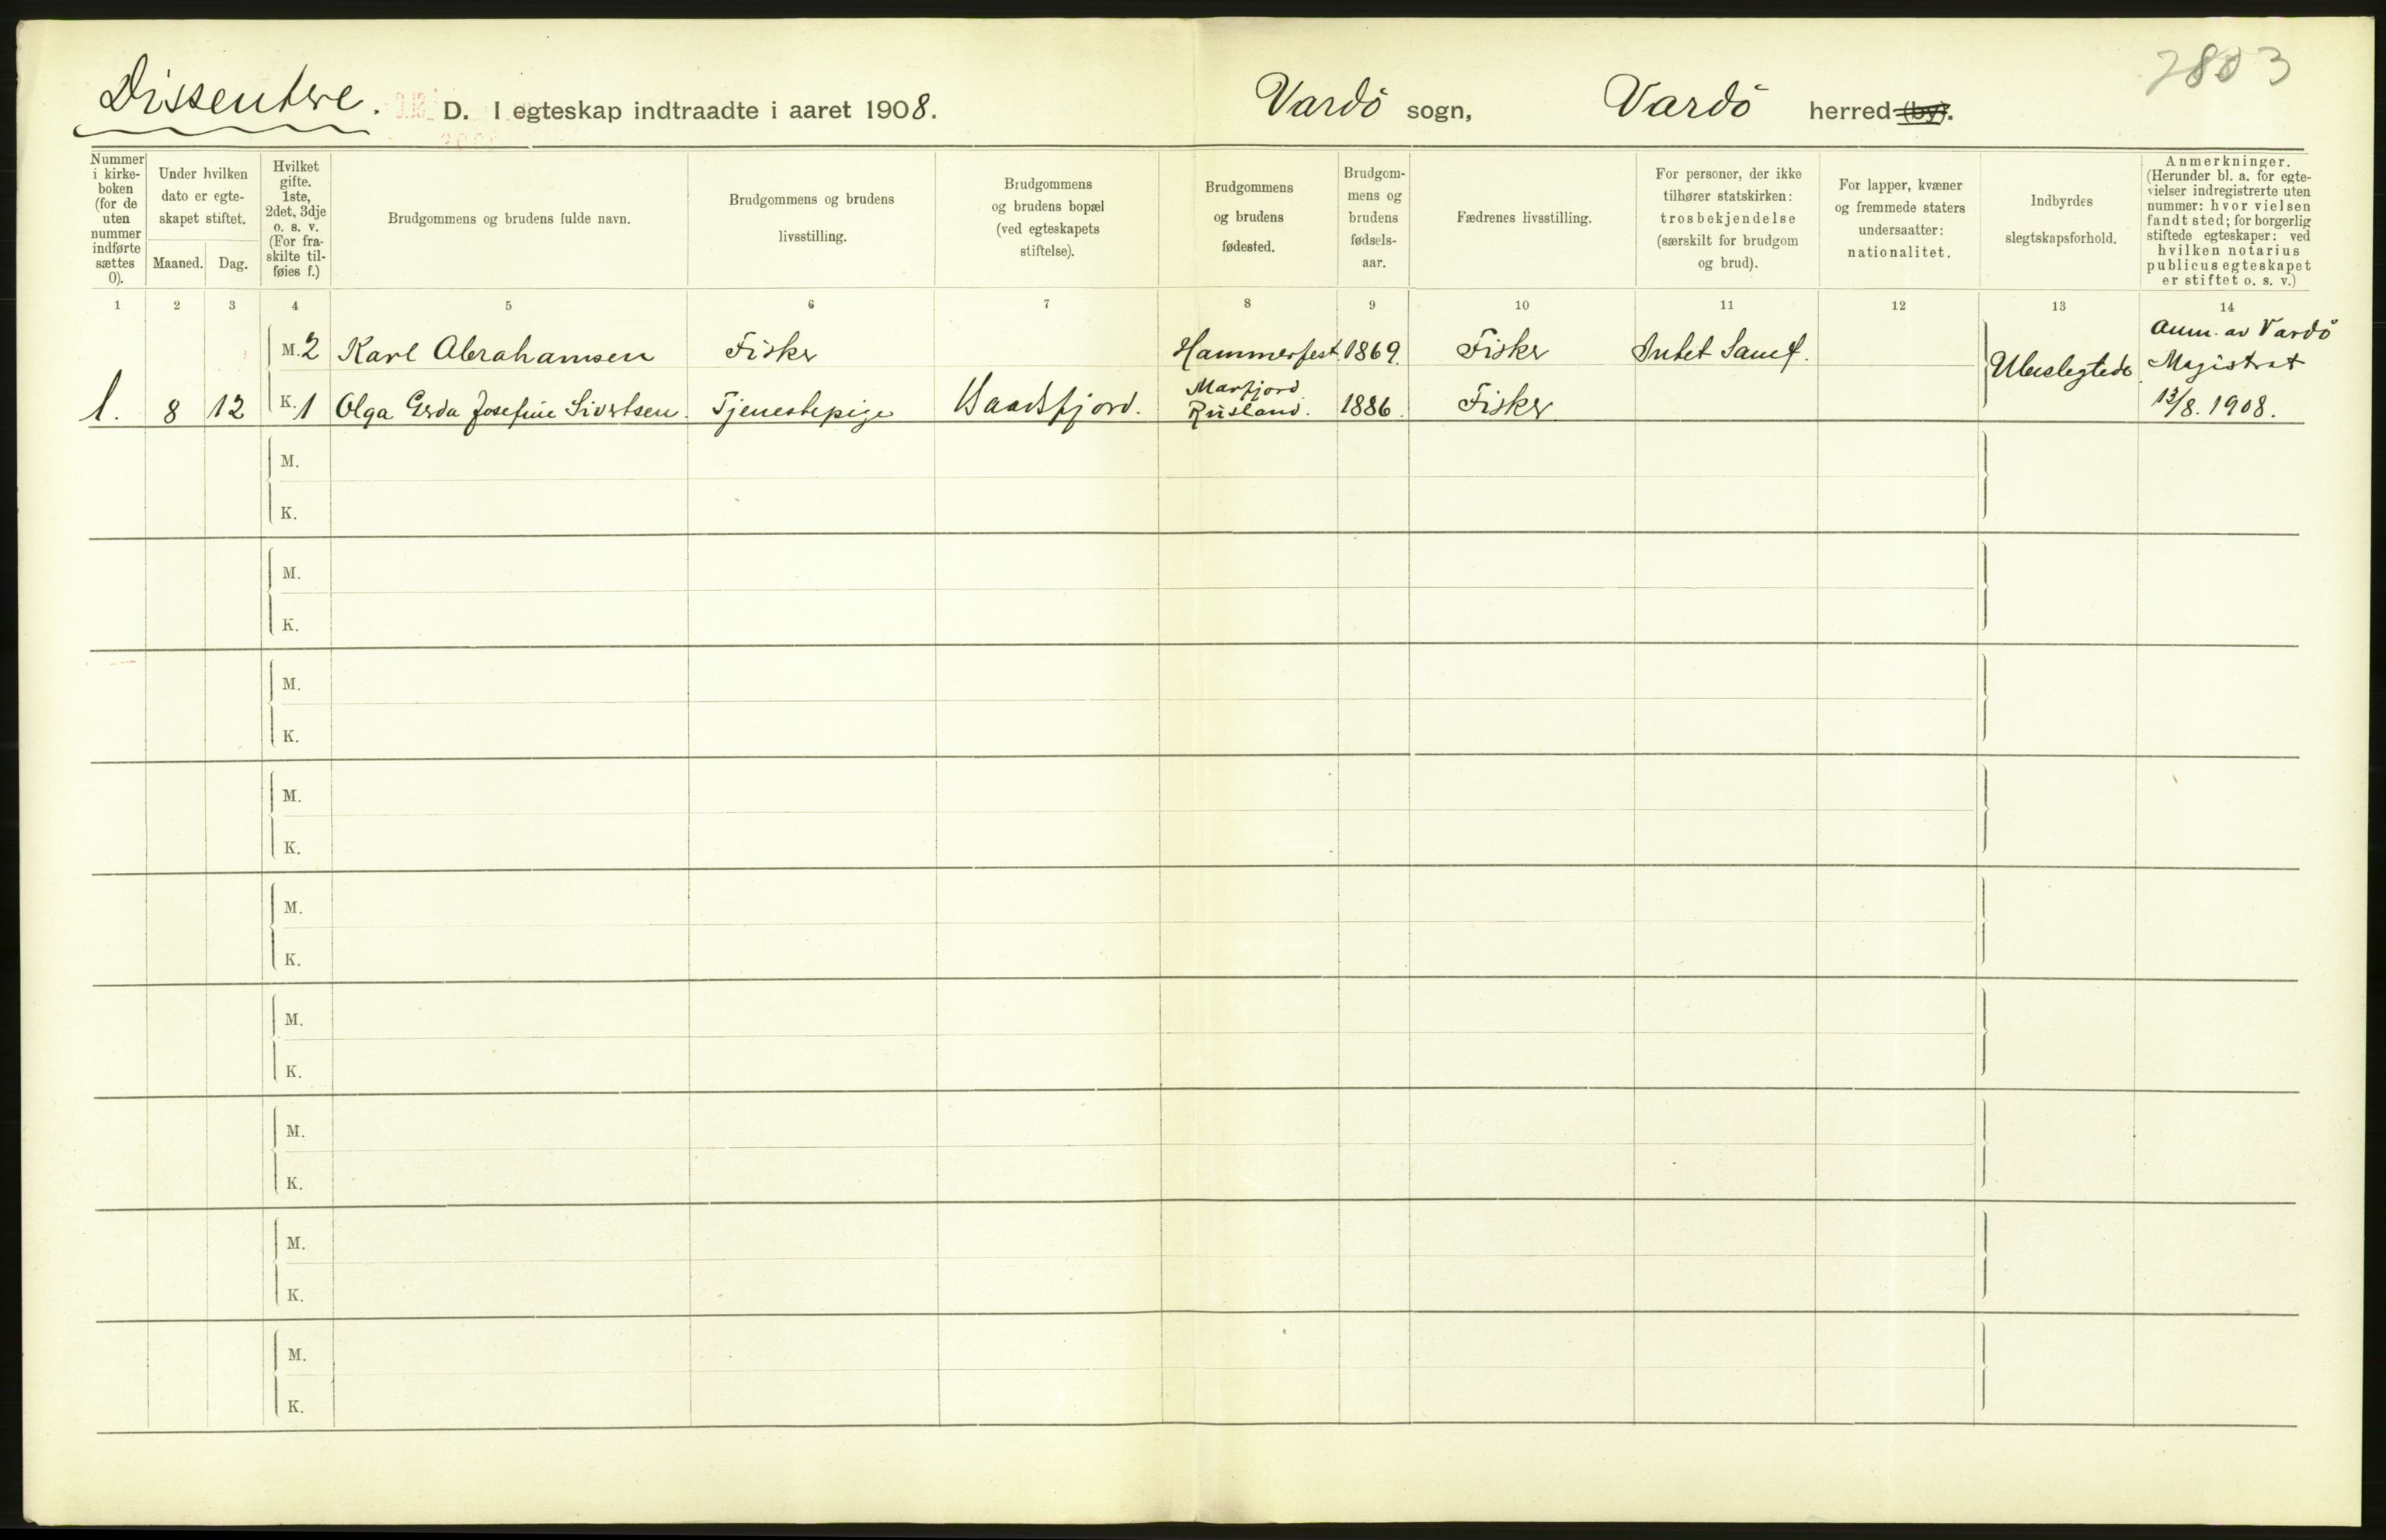 Dissentere. D. I egteskap indtraadte i aaret 1908. Vardö sogn, Vardö herred (by).
2803
Nummer
i kirke-
boken
(for de
uten
nummer
indførte
sættes
0).
Under hvilken
dato er egte-
skapet stiftet.
Maaned. Dag.
Hvilket
gifte.
1ste,
2det, 3dje
o. s. v.
(For fra-
skilte til-
føies f.)
Brudgommens og brudens fulde navn.
Brudgommens og brudens
livsstilling.
Brudgommens
og brudens bopæl
(ved egteskapets
stiftelse).
Brudgommens
og brudens
fødested.
Brudgom-
mens og
brudens
fødsels-
aar.
Fædrenes livsstilling.
For personer, der ikke
tilhører statskirken:
trosbekjendelse
(særskilt for brudgom
og brud).
For lapper, kvæner
og fremmede staters
undersaatter:
nationalitet.
Indbyrdes
slegtskapsforhold.
Anmerkninger.
(Herunder bl. a. for egte-
vielser indregistrerte uten
nummer: hvor vielsen
fandt sted; for borgerlig
stiftede egteskaper: ved
hvilken notarius
publicus egteskapet
er stiftet o. s. v.)
1 2 3 4 5 6 7 8 9 10 11 12 13 14
M. 2 Karl Abrahamsen Fisker Hammerfest 1869. Fisker Intet Samf.
1. 8 12 K. 1 Olga Gerda Josefine Sivertsen. Tjenestepige Baadsfjord. Marfjord Rusland. 1886. Fisker
Ubeslegtede
Anm. av Vardö
Magistrat
13/8. 1908.
M.
K.
M.
K.
M.
K.
M.
K.
M.
K.
M.
K.
M.
K.
M.
K.
M.
K.